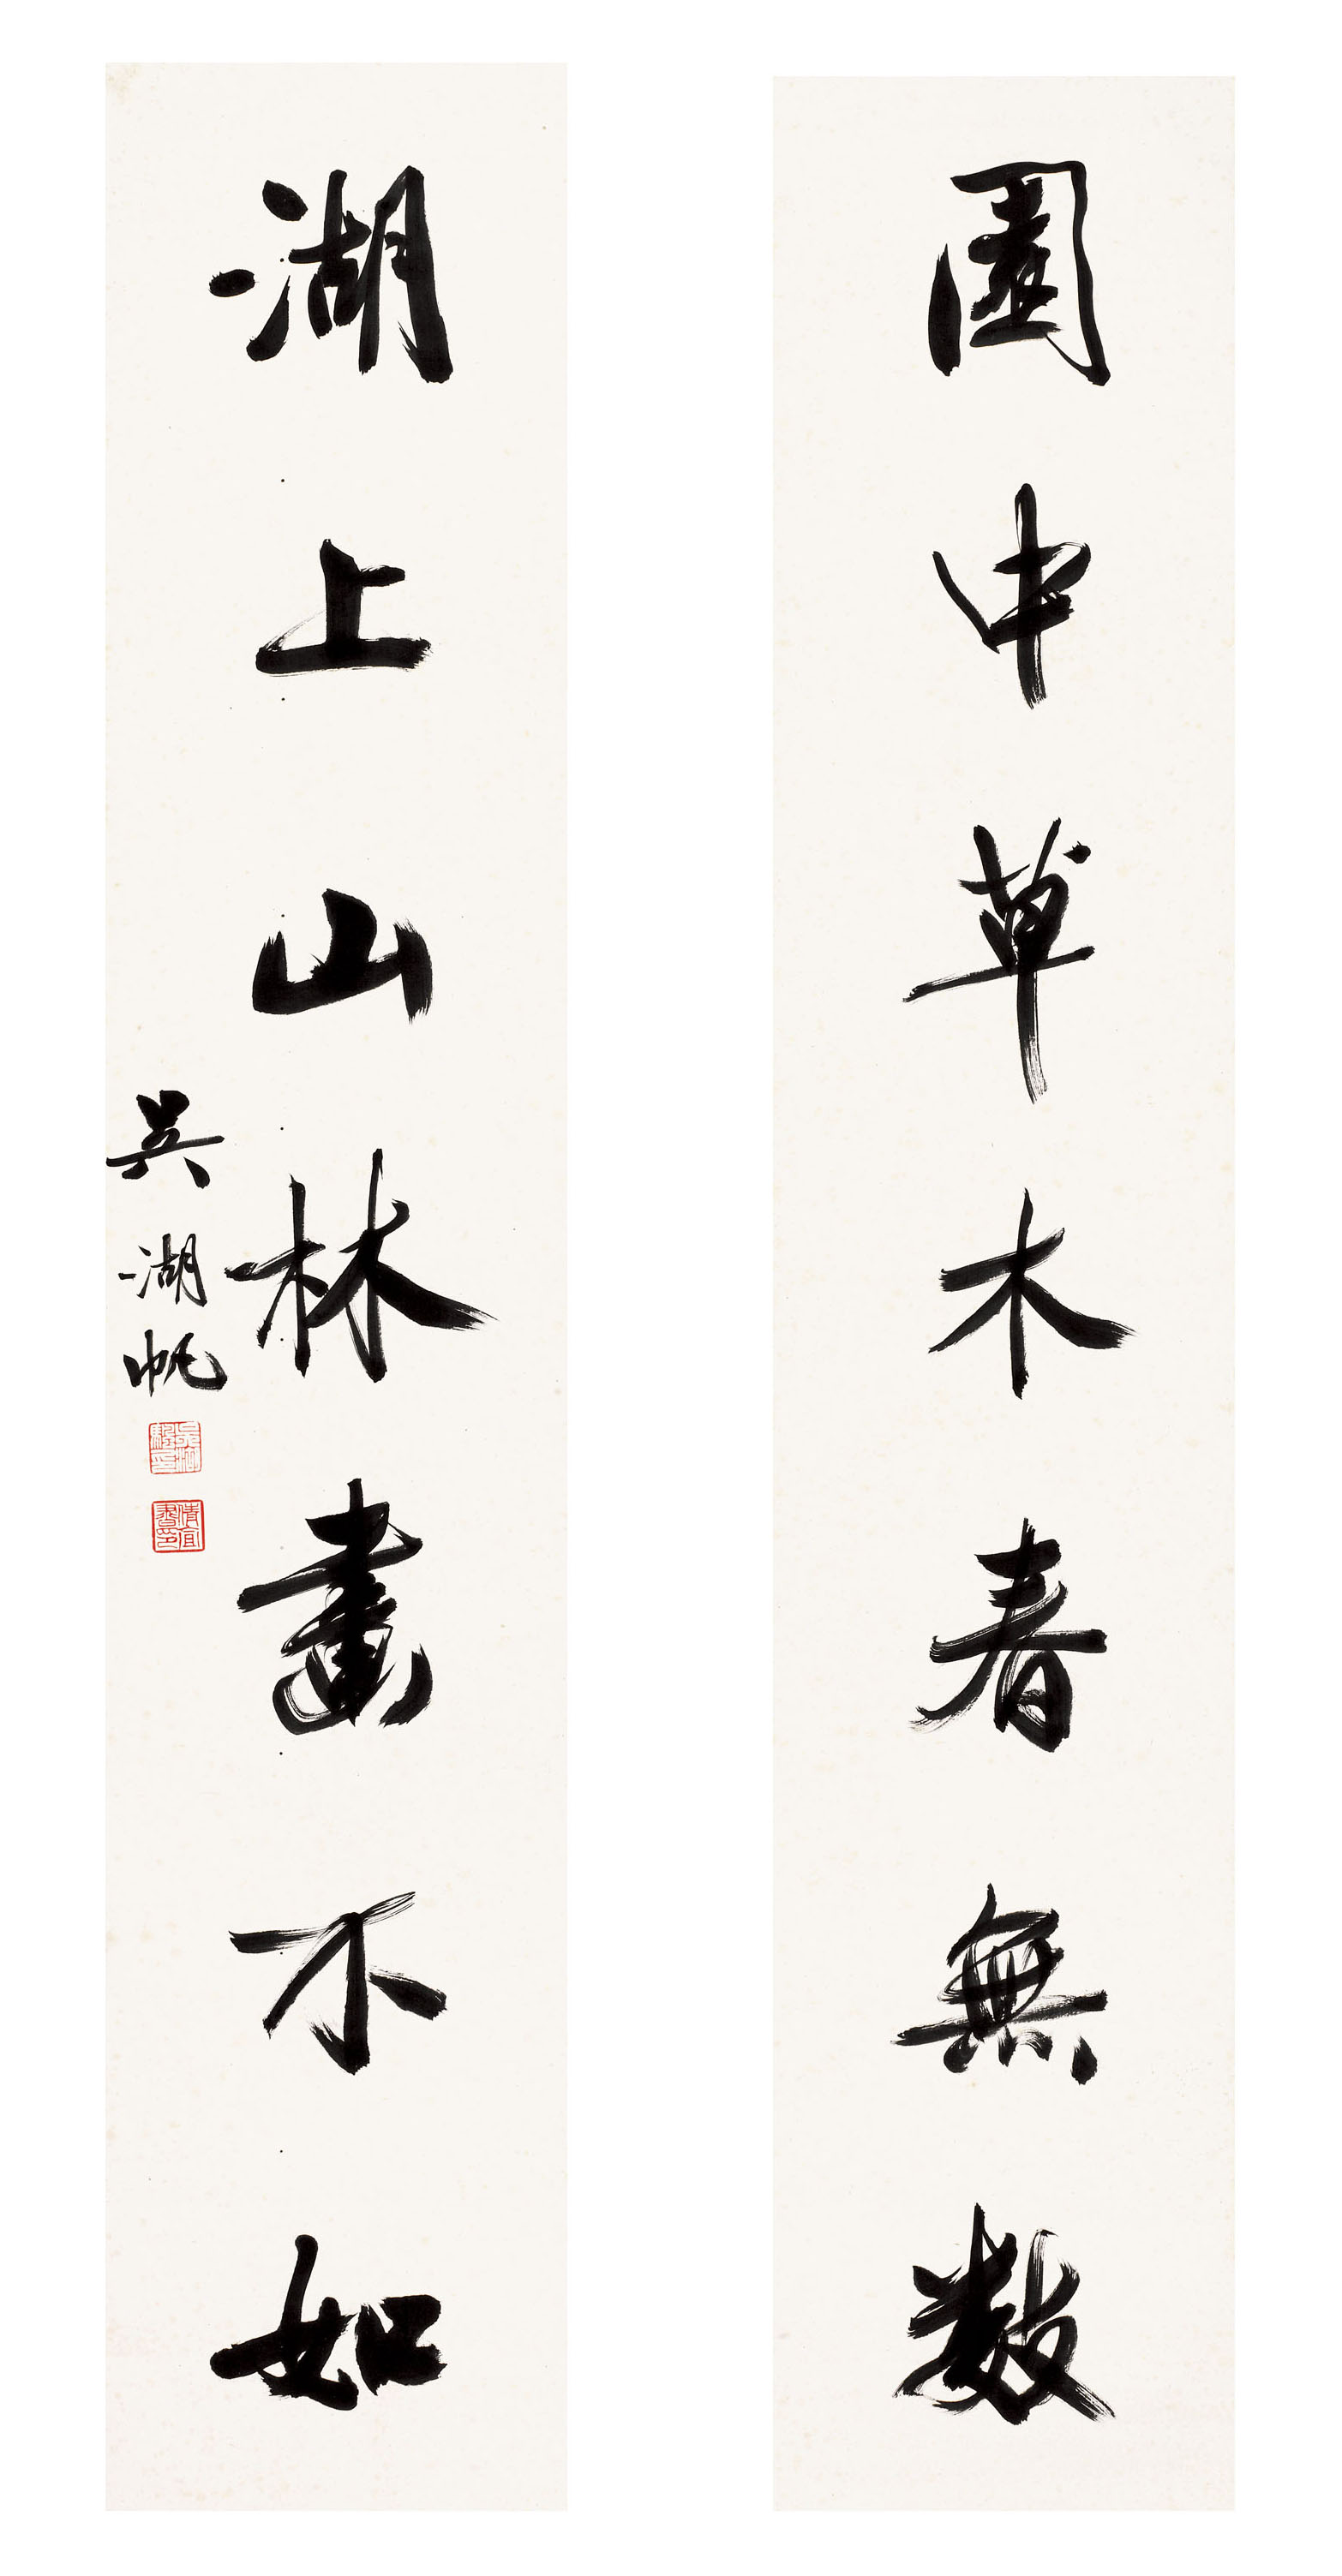 園中草木春無數
湖上山林畫不如
吳湖帆
倩宜書印